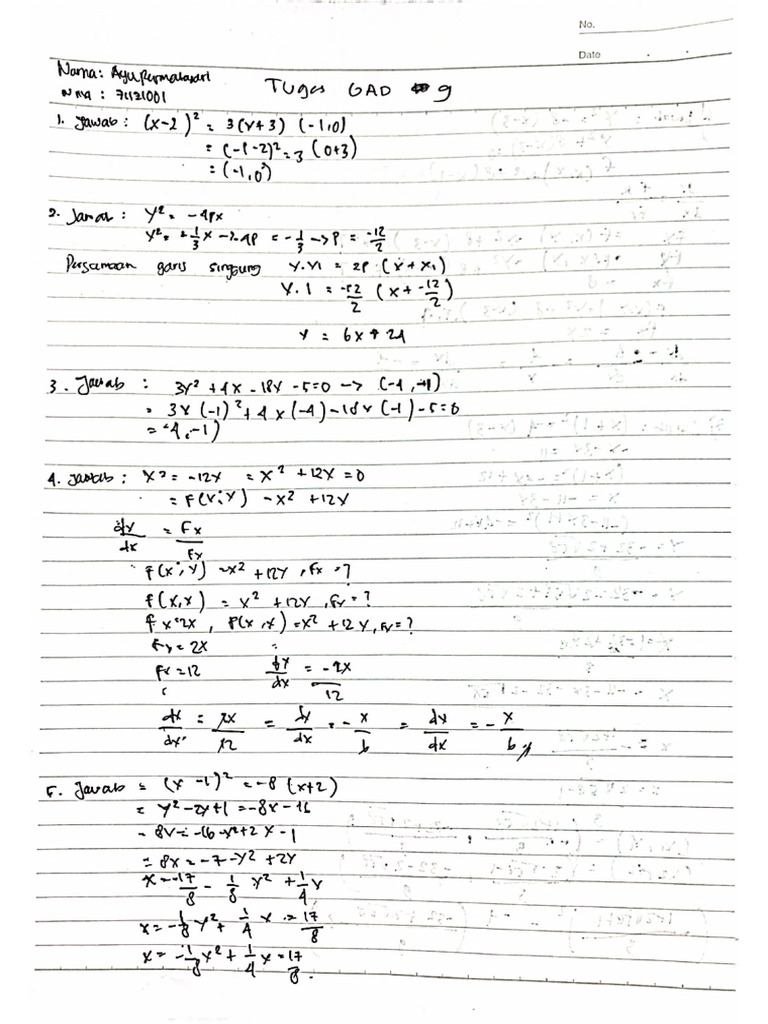 No.
Date
Nama: Ayu Permatasari
NPM : 71121001
Tugas GAD 9
1. Jawab : (x-2)² = 3(y+3) (-1,0)
= (-1-2)² = 3 (0+3)
= (-1,0)
2. Jawab : y² = -4px
y² = -1/3 x -> 4p = -1/3 -> p = -12/2
Persamaan garis singgung y.y1 = 2p (x+x1)
y.1 = -12/2 (x+ -12/2)
y = 6x + 24
3. Jawab : 3y² + 4x - 18y - 5=0 -> (-4,-1)
= 3x(-1)² + 4x(-4) - 18x(-1) - 5=0
= -4,-1)
4. Jawab : x² = -12y = x² + 12y = 0
= F(x;y) = x² + 12y
dy/dx = Fx/Fy
f(x;y) = x² + 12y, Fx = ?
f(x,y) = x² + 12y, Fy = ?
fx=2x, f(x,y) = x² + 12y, Fy = ?
Fx = 2x
Fy = 12 dy/dx = -2x/12
dy/dx = 2x/12 = dy/dx = - x/6 = dy/dx = - x/6 //
5. Jawab = (y -1)² = -8 (x+2)
= y² - 2y + 1 = -8x - 16
= 8x = -16 - y² + 2y - 1
= 8x = -17 - y² + 2y
x = -17/8 - 1/8 y² + 1/4 y
x = -1/8 y² + 1/4 x = 17/8
x = -1/8 x² + 1/4 x = 17/8.